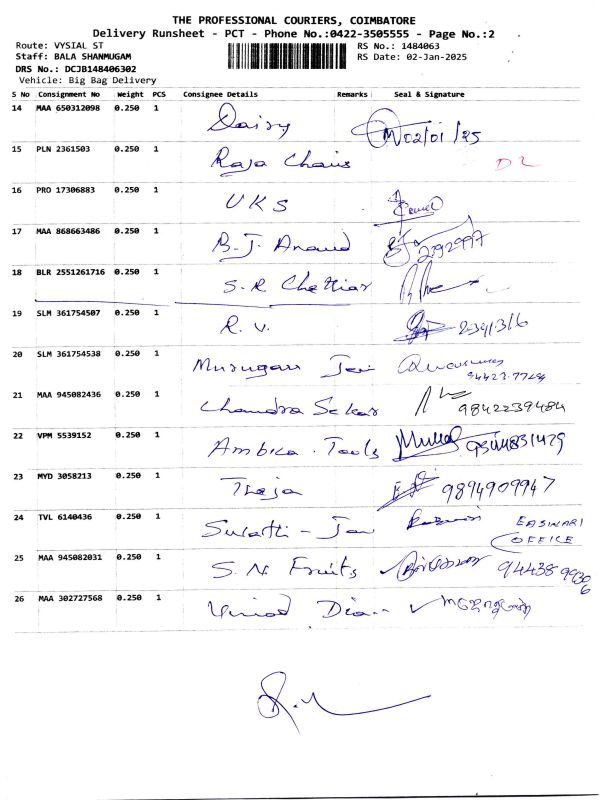 THE PROFESSIONAL COURIERS, COIMBATORE
Delivery Runsheet - PCT - Phone No.:0422-3505555 - Page No.:2
Route: VYSIAL ST RS No.: 1484063
Staff: BALA SHANMUGAM RS Date: 02-Jan-2025
DRS No.: DCJB148406302
Vehicle: Big Bag Delivery
S No Consignment No Weight PCS Consignee Details Remarks Seal & Signature
14 MAA 650312098 0.250 1 Daisy 02/01/25
15 PLN 2361503 0.250 1 Raja Chairs D2
16 PRO 17306883 0.250 1 UKS
17 MAA 868663486 0.250 1 B.J. Anand 2392997
18 BLR 2551261716 0.250 1 S.R Chettiar
19 SLM 361754507 0.250 1 R.V.
20 SLM 361754538 0.250 1 Murugan
21 MAA 945082436 0.250 1 Chandra Sekar 9842239484
22 VPM 5539152 0.250 1 Ambica Tools
23 MYD 3058213 0.250 1 Theja 9894909947
24 TVL 6140436 0.250 1 EASWARI
OFFICE
25 MAA 945082031 0.250 1 S.N Fruits
26 MAA 302727568 0.250 1